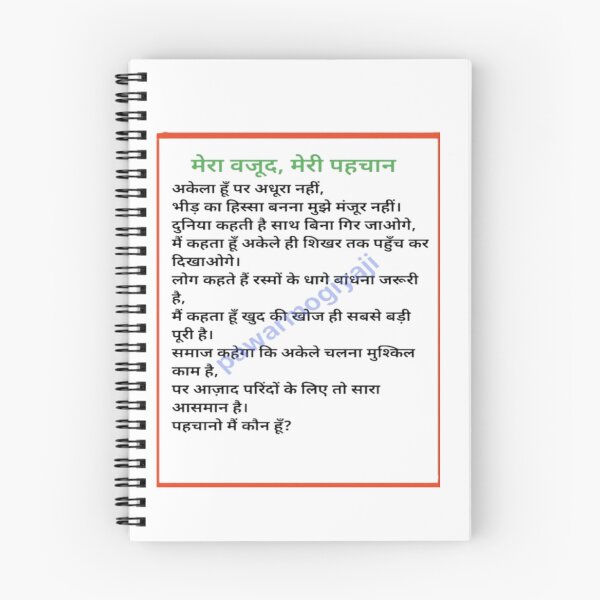 मेरा वजूद, मेरी पहचान
अकेला हूँ पर अधूरा नहीं,
भीड़ का हिस्सा बनना मुझे मंजूर नहीं।
दुनिया कहती है साथ बिना गिर जाओगे,
मैं कहता हूँ अकेले ही शिखर तक पहुँच कर
दिखाओगे।
लोग कहते हैं रस्मों के धागे बांधना जरूरी
है,
मैं कहता हूँ खुद की खोज ही सबसे बड़ी
पूरी है।
समाज कहेगा कि अकेले चलना मुश्किल
काम है,
पर आज़ाद परिंदों के लिए तो सारा
आसमान है।
पहचानो मैं कौन हूँ?
pawarmogiyaji